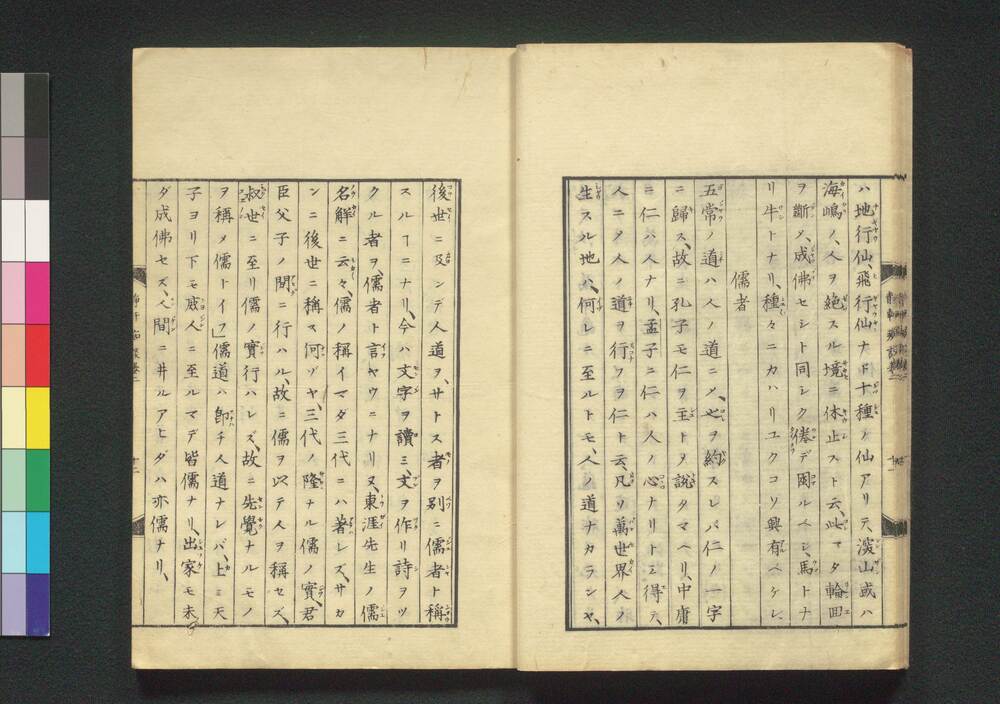 ハ地行仙、飛行仙ナド十種ノ仙アリテ、深山或ハ
海嶋ノ、人ヲ絶スル境ニ休止スト云、此マタ輪回
ヲ斷タズ、成佛セシト同シク倦デ困ルベシ、馬トナ
リ牛トナリ、種々ニカハリユクコソ興有ベケレ、
儒者
五常ノ道ハ人ノ道ニメ、ヲ約スレバ仁ノ一字
ニ歸ス、故ニ孔子モ仁ヲ主トメ説タマヘリ、中庸
ニ仁ハ人ナリ、孟子ニ仁ハ人ノ心ナリトミ得テ、
人ニメ人ノ道ヲ行フヲ仁ト云、凡ソ萬世界人ノ
生スル地ハ、何レニ至ルトモ、人ノ道ナカランヤ、
後世ニ及ンデ人道ヲ、サトス者ヲ別ニ儒者ト稱
スルヿニナリ、今ハ文字ヲ讀ミ、文ヲ作リ詩ヲツ
クル者ヲ、儒者ト言ヤウニナリヌ、東涯先生ノ儒
名解ニ云々、儒ノ稱イマダ三代ニハ著レズ、サカ
ンニ後世ニ稱ス何ゾヤ、三代ノ隆ナル儒ノ實、君
臣父子ノ間ニ行ハル、故ニ儒ヲ以テ人ヲ稱セズ、
叔世ニ至リ儒ノ實行ハレズ、故ニ先覺ナルモノ
ヲ稱メ儒トイフ儒道ハ即チ人道ナレバ、上ミ天
子ヨリ下モ人ニ至ルマデ皆儒ナリ、出家モ未
ダ成佛セズ、人間ニ井ルアヒダハ亦儒ナリ、